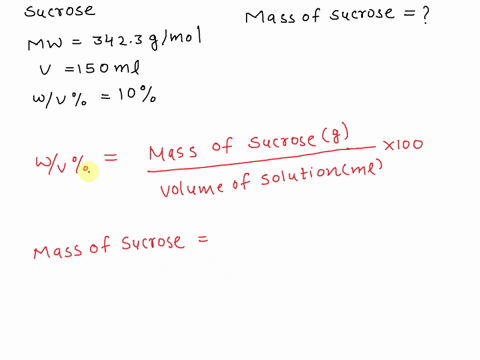 Sucrose
Mass of sucrose = ?
MW = 342.3 g/mol
V = 150 ml
W/V % = 10%
W/V % = Mass of Sucrose (g) / Volume of Solution (ml) × 100
Mass of Sucrose =